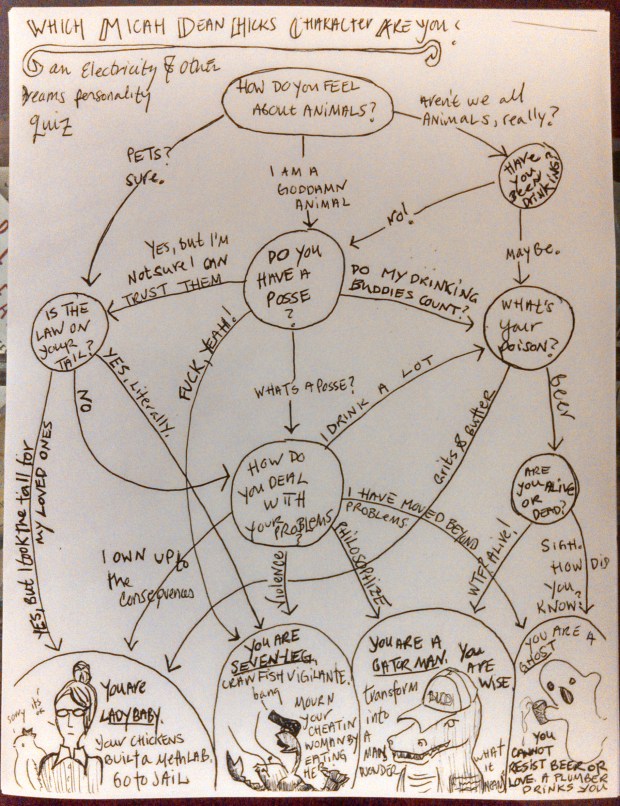 WHICH MICAH DEAN HICKS CHARACTER ARE YOU?
an Electricity & Other
Dreams personality
quiz
HOW DO YOU FEEL
ABOUT ANIMALS?
Aren't we all
ANIMALS, really?
PETS?
sure.
I AM A
GODDAMN
ANIMAL
HAVE
YOU
BEEN
DRINKING?
No!
MAYBE.
YES, BUT I'M
NOT SURE I CAN
TRUST THEM
DO YOU
HAVE A
POSSE
?
DO MY DRINKING
BUDDIES COUNT?
IS THE
LAW ON
YOUR
TAIL?
WHAT'S
Your
POISON?
YES, Literally.
FUCK, YEAH!
WHAT'S A POSSE?
I DRINK A LOT
NO
Grits & Butter
Beer
YES, BUT I TOOK The fall for
MY LOVED ONES
HOW DO
YOU DEAL
WITH
YOUR PROBLEMS
?
ARE
YOU ALIVE
OR
DEAD?
I HAVE MOVED BEYOND
PROBLEMS
I OWN UP to
the
consequences
Violence
PHILOSOPHIZE
WTF? ALIVE!
SIGH.
HOW DID
YOU
KNOW?
YOU ARE
LADYBABY.
Your CHICKENS
BUILT a METH LAB.
GO to JAIL
sorry
YOU ARE
SEVEN-LEG,
CRAWFISH VIGILANTE.
bang
MOURN
YOUR
CHEATIN'
WOMAN BY
EATING
HER
YOU ARE A
GATOR MAN. YOU
ARE
WISE
transform
into
A
MAN.
WONDER
WHAT
IT
MEANS
YOU ARE A
GHOST
YOU
CANNOT
RESIST BEER OR
LOVE. A PLUMBER
DRINKS YOU